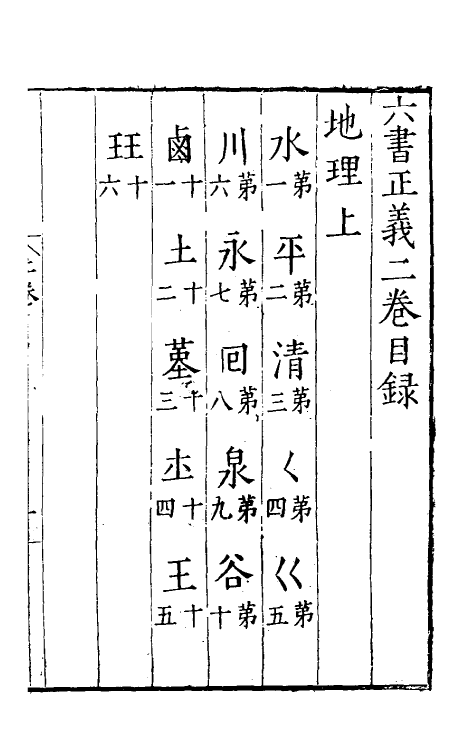 六書正義二卷目録
地理上
水第一 平第二 清第三 𡿨第四 巜第五
川第六 永第七 回第八 泉第九 谷第十
鹵十一 土十二 墓十三 𡉚十四 王十五
玨十六